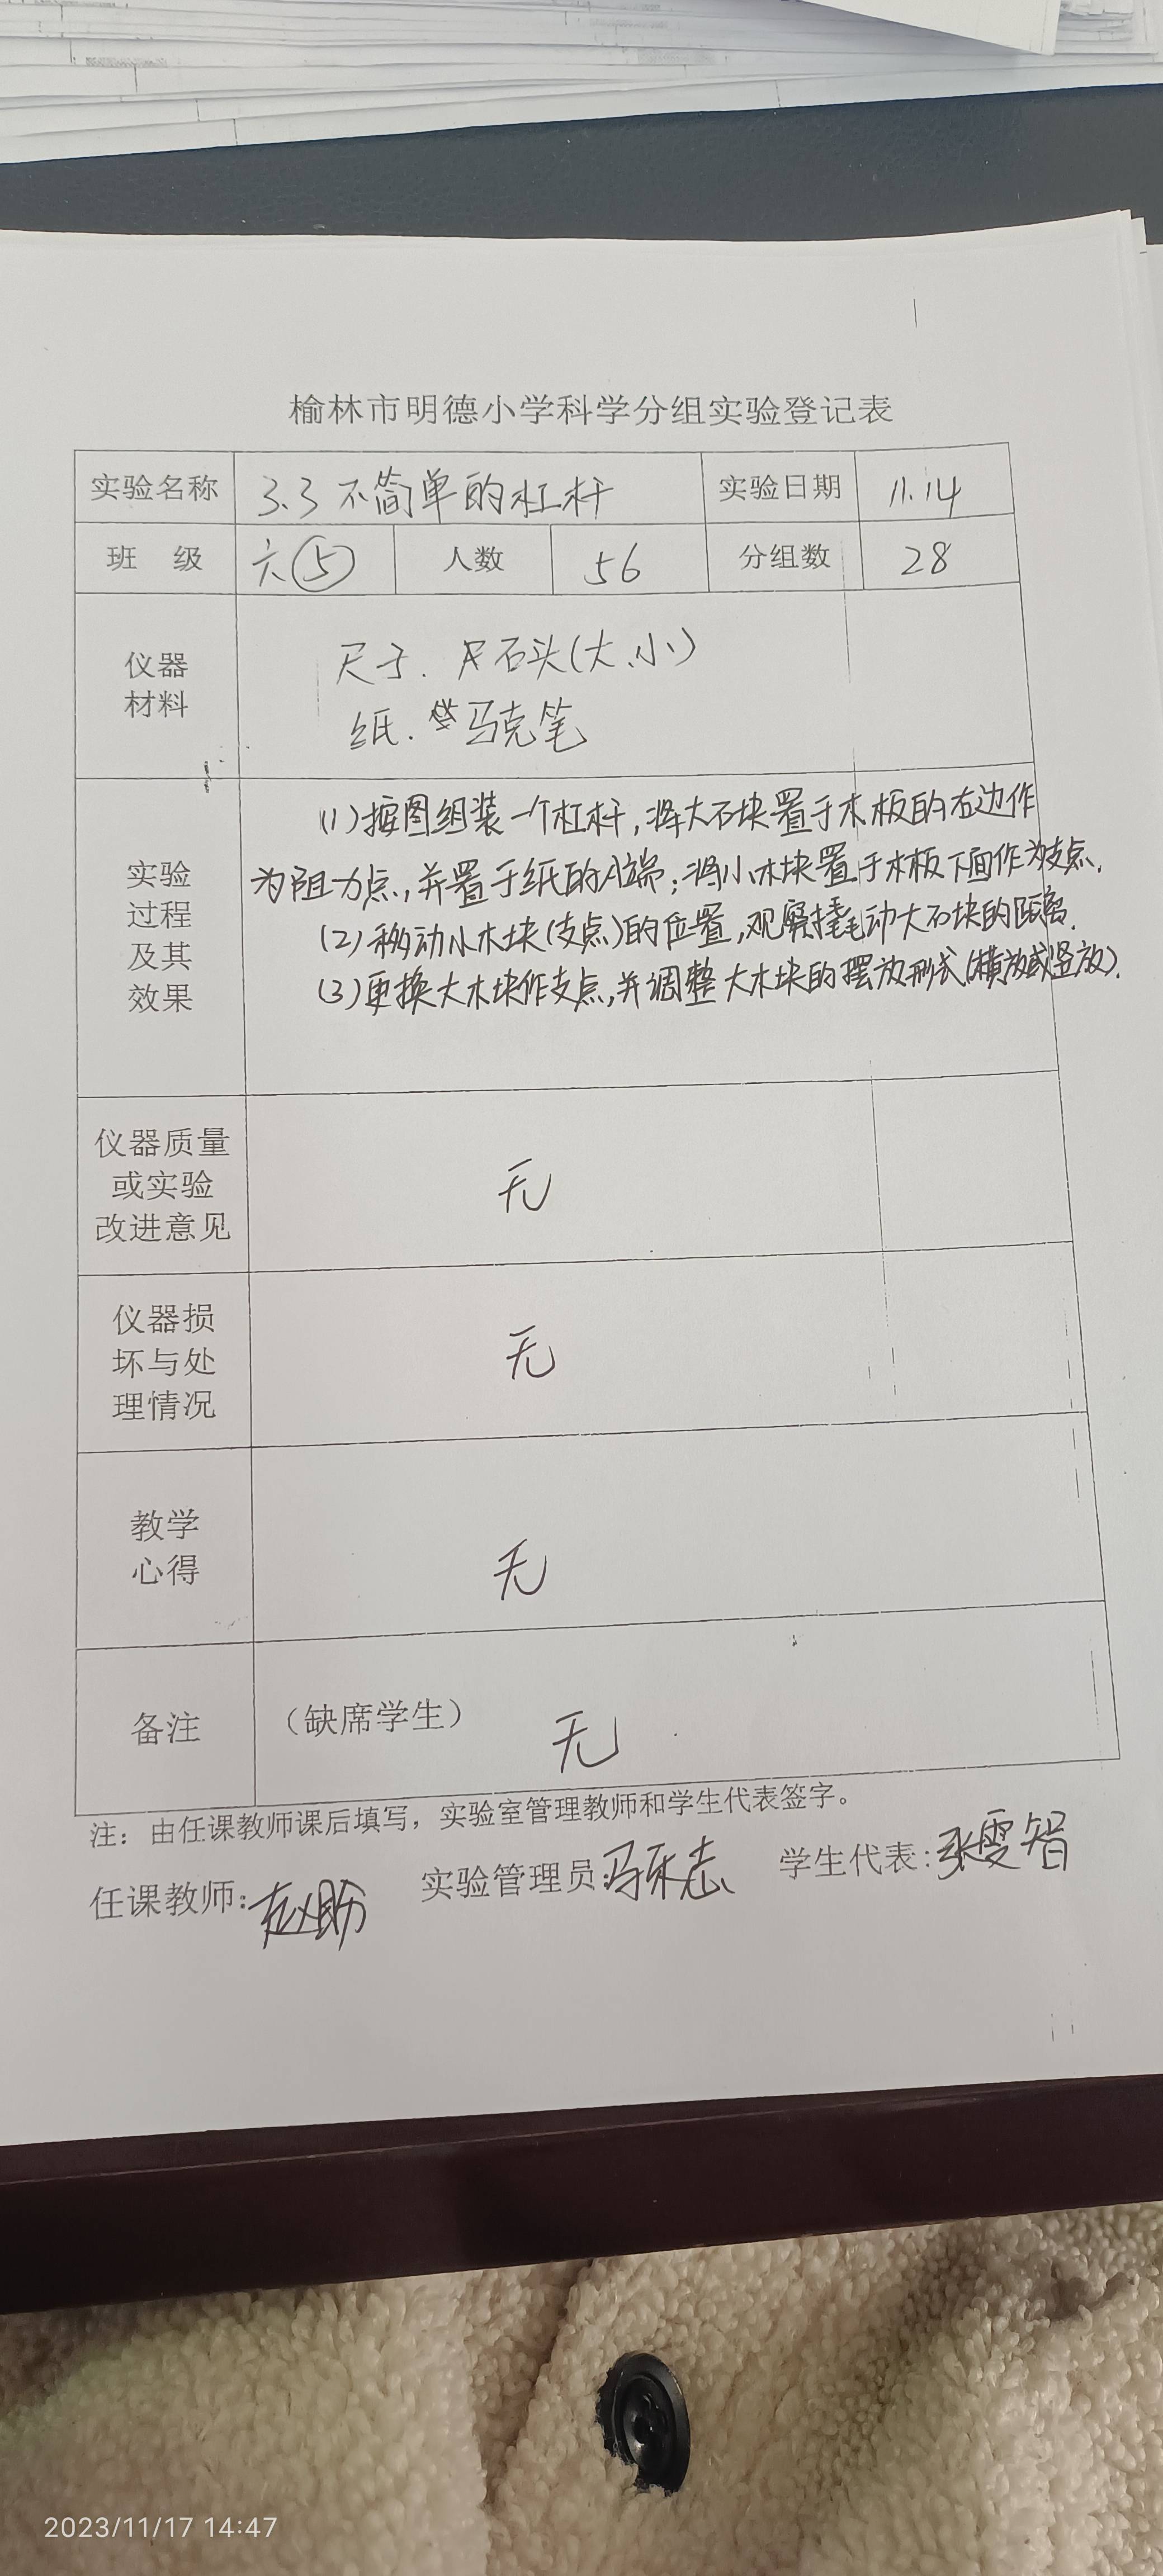 榆林市明德小学科学分组实验登记表
实验名称 3.3 不简单的杠杆 实验日期 11.14
班 级 六⑤ 人数 56 分组数 28
仪器
材料
尺子. 石头(大、小)
纸. 马克笔
实验
过程
及其
效果
(1)按图组装一个杠杆,将大石块置于木板的右边作
为阻力点,并置于纸的A端;将小木块置于木板下面作为支点.
(2)移动小木块(支点)的位置,观察撬动大石块的距离.
(3)更换大木块作支点,并调整大木块的摆放形式(横放或竖放).
仪器质量
或实验
改进意见
无
仪器损
坏与处
理情况
无
教学
心得
无
备注 (缺席学生) 无
注：由任课教师课后填写，实验室管理教师和学生代表签字。
任课教师: 实验管理员: 学生代表: 张雯智
2023/11/17 14:47